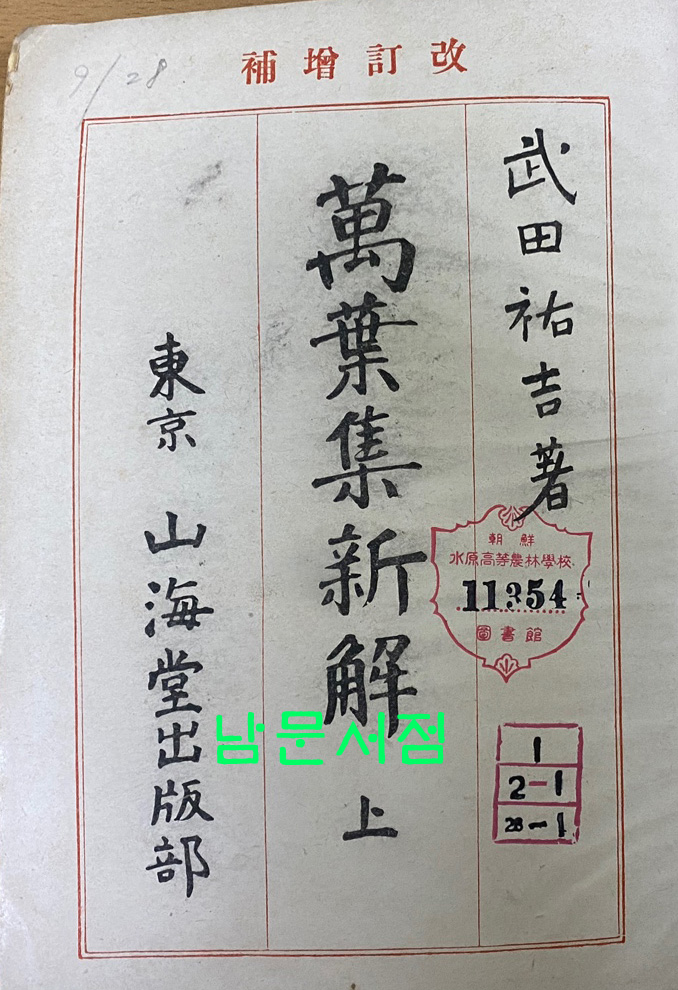 9/28
改訂增補
武田祐吉著
萬葉集新解 上
東京 山海堂出版部
朝鮮
水原高等農林學校
11354
圖書館
1
2-1
28-1
남문서점